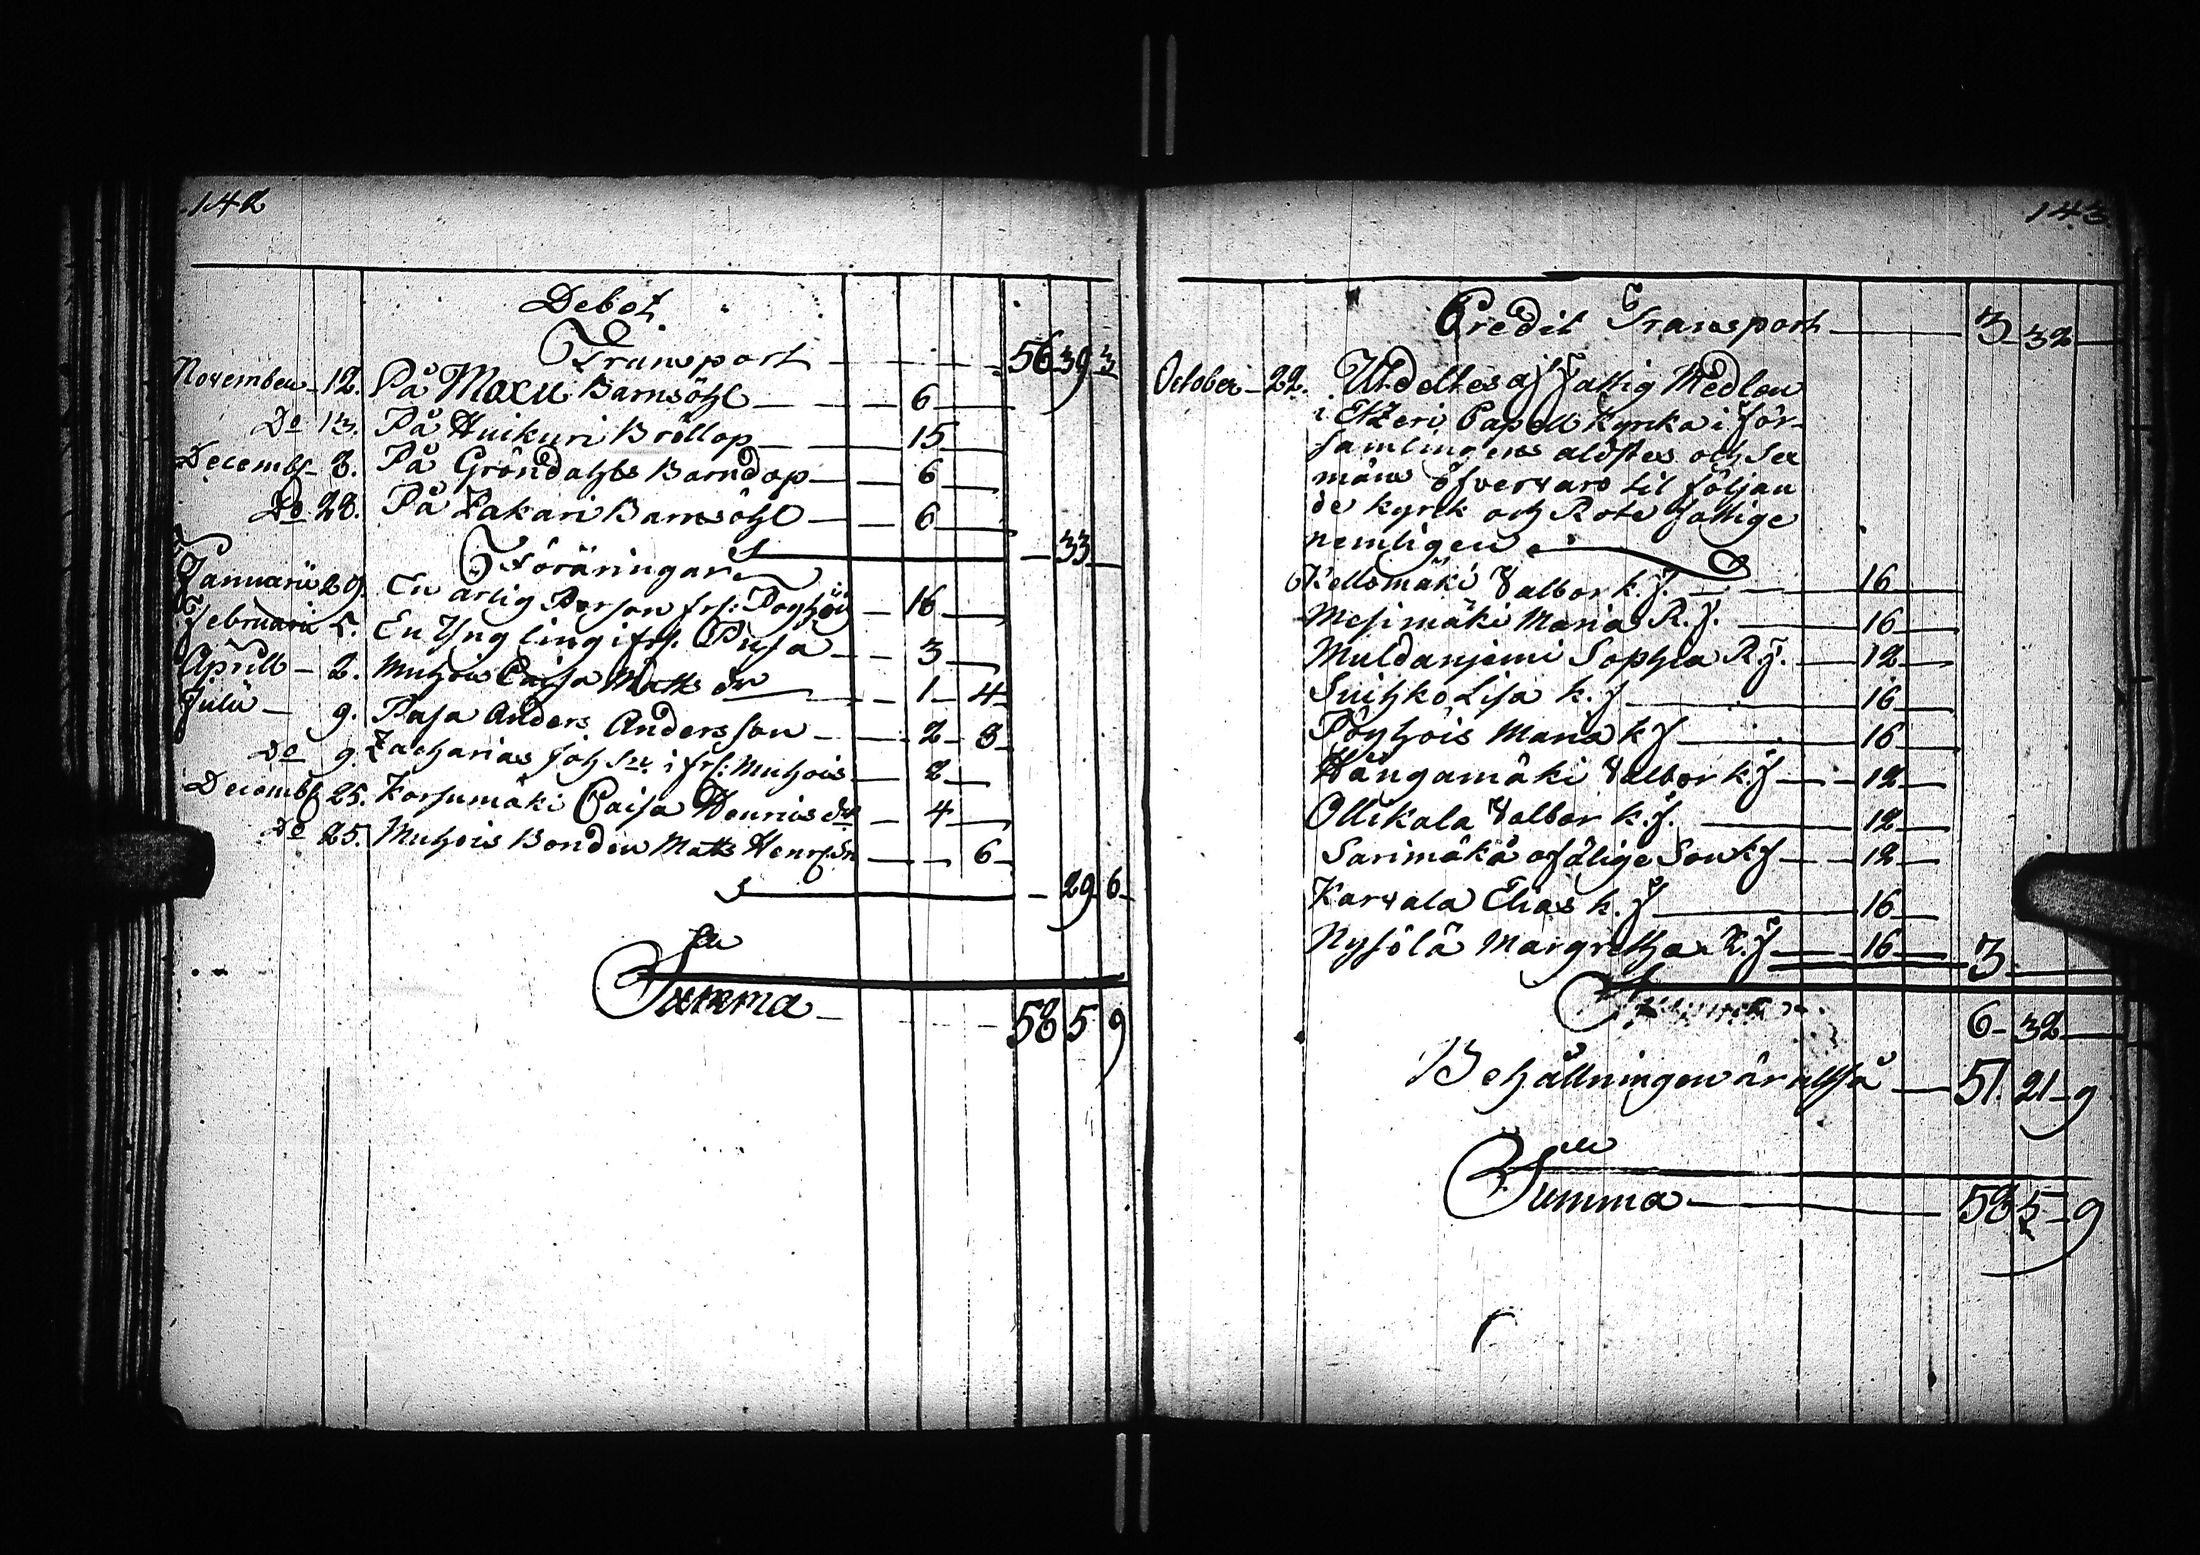 142
Debet
Transport - - - - 56 39 3
November - 12. På Maxu Barnsöhl - - - 6 -
Do 13. På Huikuri Bröllop - - 15 -
Decembr 8. På Gröndahls Barndop - - 6 -
Do 28. På Zakari Barnsöhl - - 6 -
- 33 -
Föräringar
Januarii 29. En ärlig Person frå: Pöyhöis - 16 -
Februarii 5. En Yngling ifrå. Pusa - - 3 -
Aprill - 2. Muhois Caisa Matts dr - - 1 - 4
Julii - 9. Pasa Anders Andersson - - 2 - 8
Do 9. Zacharias Joh Sn. ifrå: Muhois - 2 -
Decembr 25. Korsumäki Caisa Henrics dr - 4 -
Do 25. Muhois Bonden Matts Henrs: Sn - - 6
- 29 6 -
Summa - - - - 58 5 9
143
Credit Transport - 3 32 -
October - 22. Utdeltes af Fattig Medlen
i Etzeri Capell Kyrka i för-
samlingens äldstes och Sex
mäns öfvervaro til följan
de kyrk och Rote fattige
nemligen
Kellomäki Valbor k. f. - - 16 -
Mesimäki Maria R. f. - 16 -
Muldanjemi Sophia R f. - 12 -
Suihko Lisa k. f - 16 -
Pöyhöis Maria k f - 16 -
Hangamäki Valbor k. f - 12 -
Ollikala Valbor k. f. - 12 -
Sarimäkä ofälige Son k f - 12 -
Karvala Elias k. f - 16 -
Nysölä Margretha k. f - 16 - 3 -
Summa 6 - 32 -
Behållningen är altså - 51. 21 - 9
Summa - 58 5 - 9